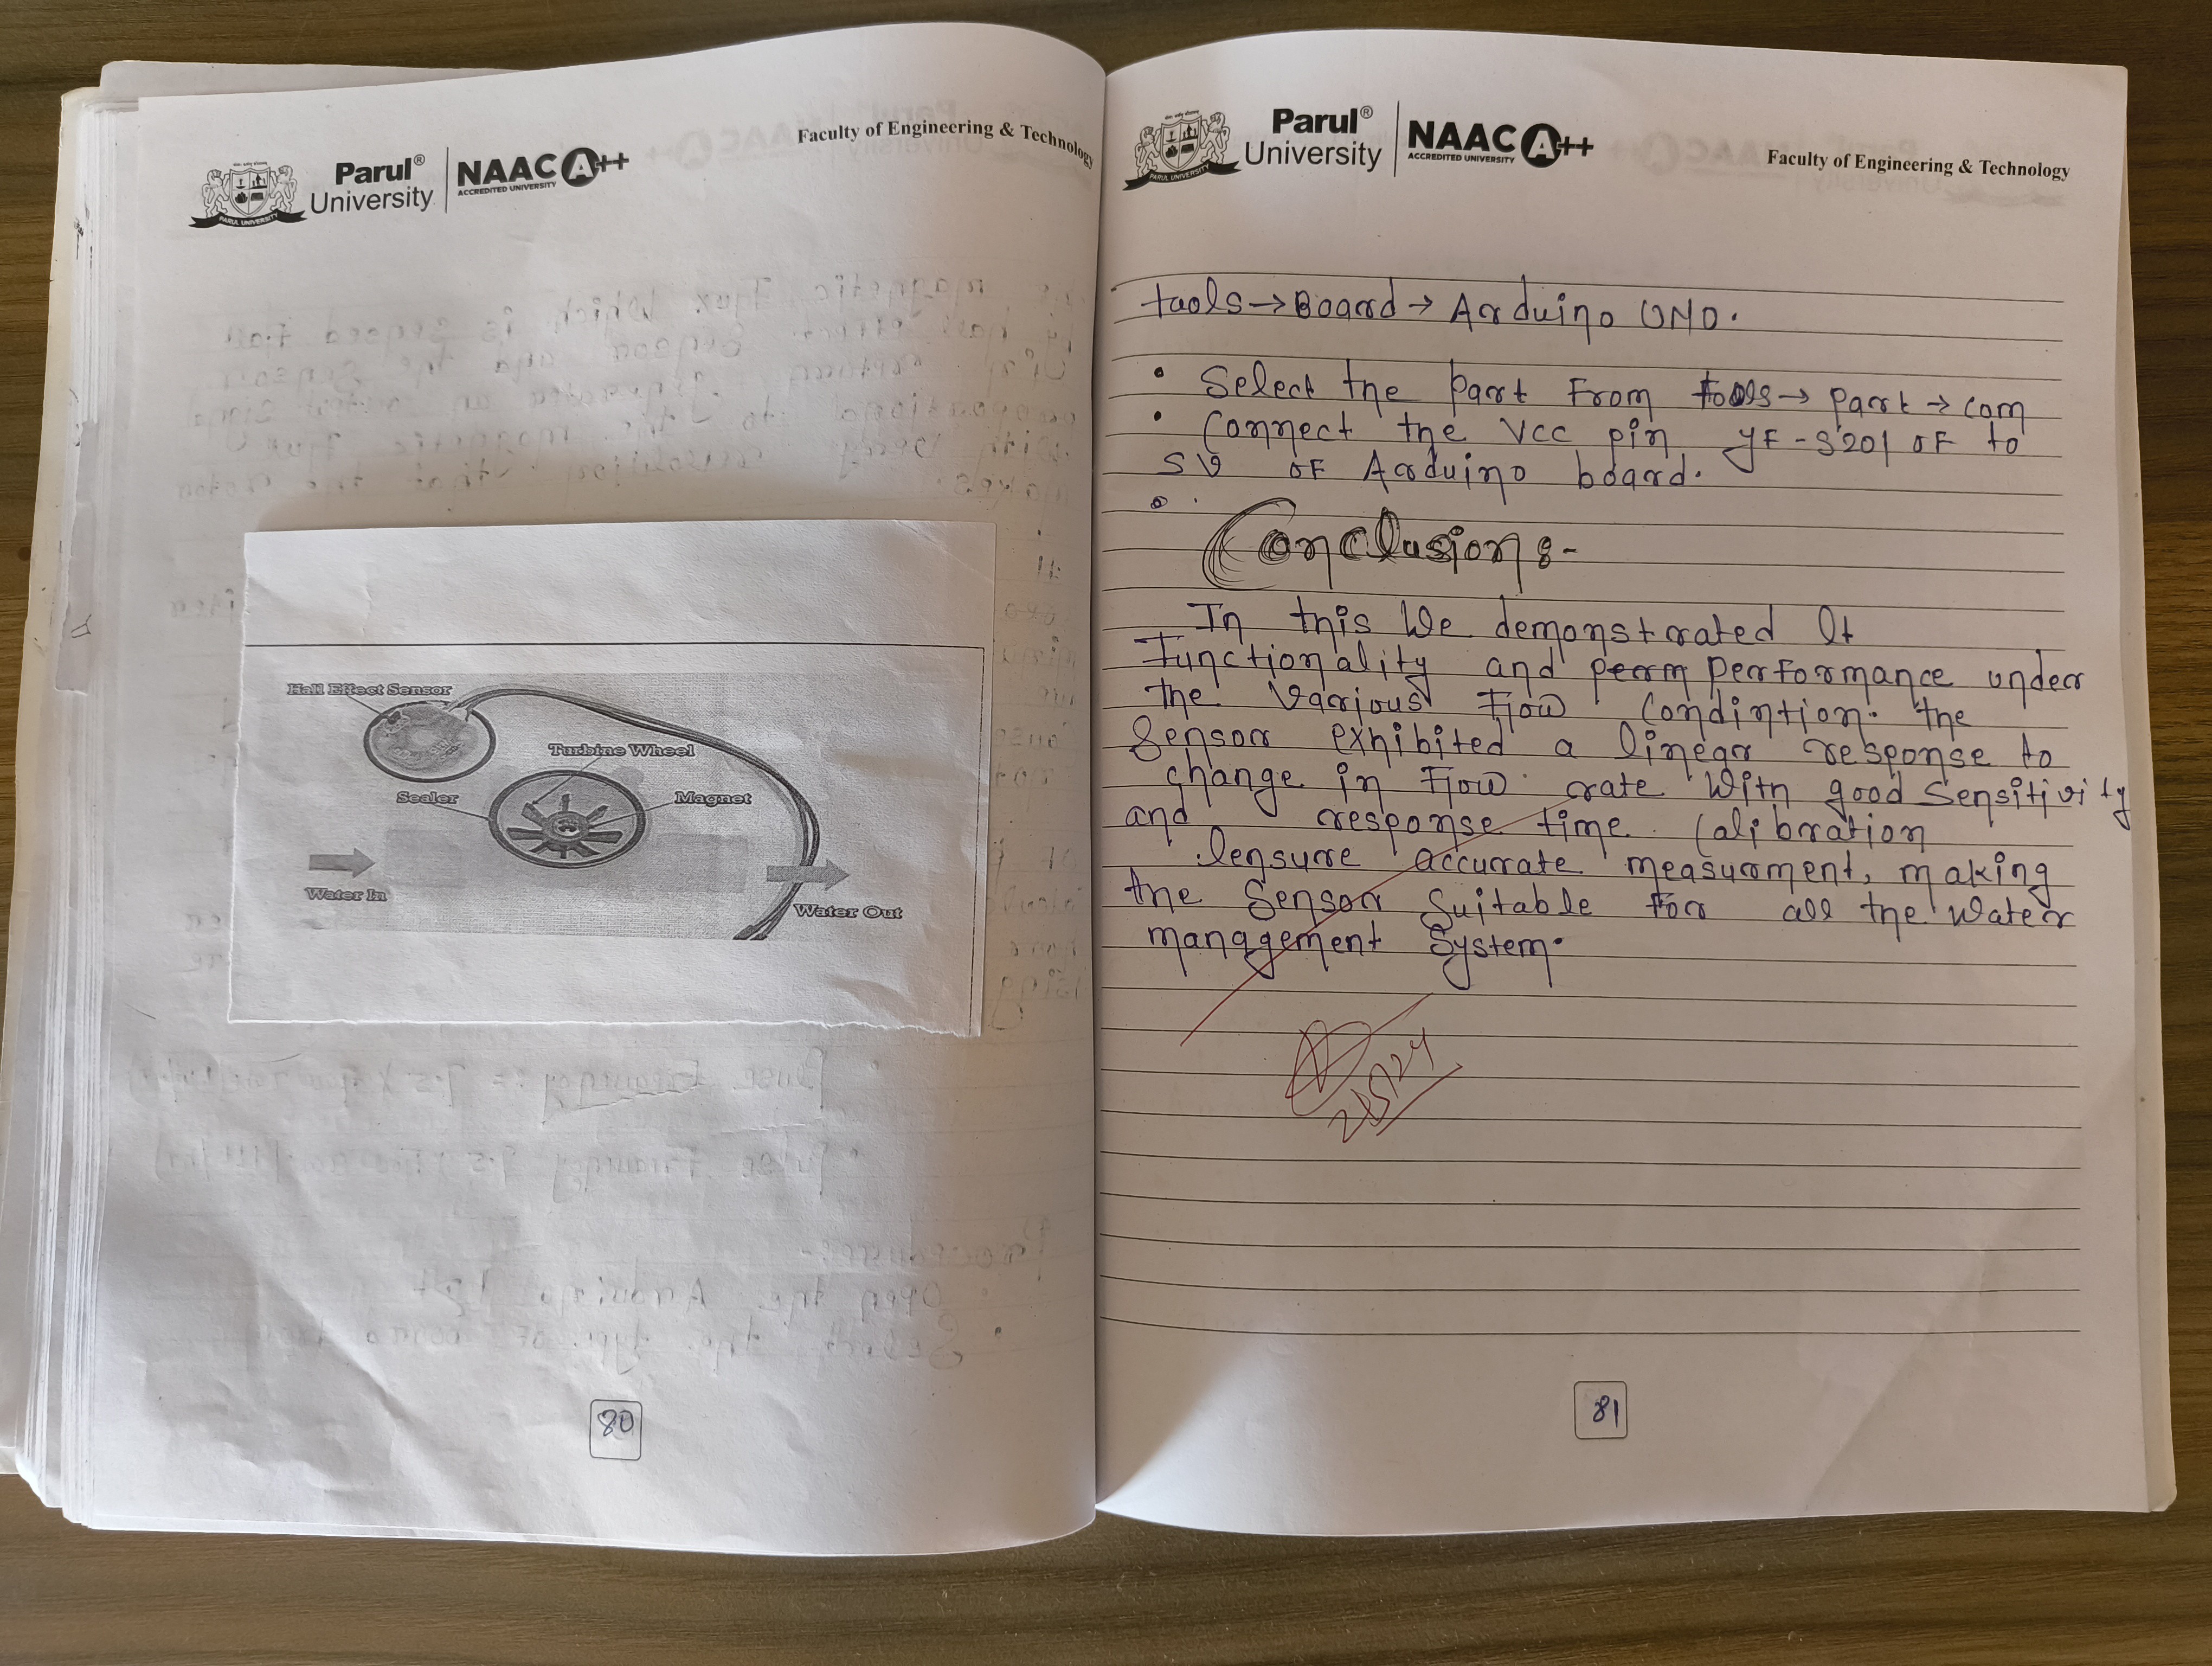 Parul®
University
NAAC A++
ACCREDITED UNIVERSITY
PARUL UNIVERSITY
Faculty of Engineering & Technology
Hall Effect Sensor
Turbine Wheel
Sealer
Magnet
Water In
Water Out
80
Parul®
University
NAAC A++
ACCREDITED UNIVERSITY
PARUL UNIVERSITY
Faculty of Engineering & Technology
tools → Board → Arduino UNO.
• Select the port From tools → port → com
• Connect the Vcc pin YF-S201 OF to
5V OF Arduino board.
Conclusion :-
In this We demonstrated It
Functionality and perm performance under
the Various Flow Condintion. the
Sensor exhibited a linear response to
change in Flow rate With good Sensitivity
and response time. Calibration
lensure accurrate measurment, making
the Sensor Suitable For all the Water
management System.
81